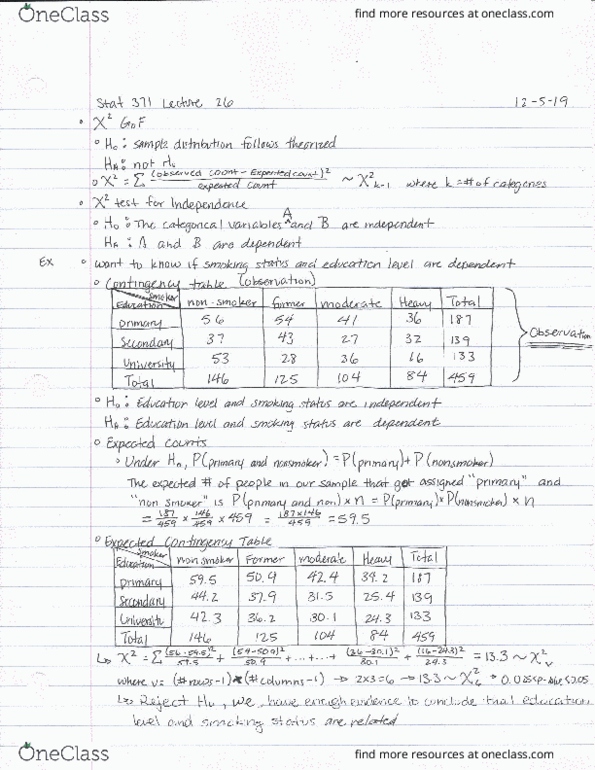 OneClass
find more resources at oneclass.com
Stat 371 Lecture 26 12-5-19
• X² GoF
◦ H₀: sample distribution follows theorized
H_A: not H₀
◦ X² = Σ (observed count - Expected count)² / expected count ~ X²_{k-1} where k = # of categories
• X² test for Independence
◦ H₀: The categorical variables ^A and B are independent
H_A: A and B are dependent
Ex ◦ want to know if smoking status and education level are dependent
◦ Contingency table (observation)
Education Smoker non-smoker former moderate Heavy Total
primary 56 54 41 36 187
Secondary 37 43 27 32 139
University 53 28 36 16 133
Total 146 125 104 84 459
Observation
◦ H₀: Education level and smoking status are independent
H_A: Education level and smoking status are dependent
◦ Expected counts
◦ Under H₀, P(primary and nonsmoker) = P(primary) + P(nonsmoker)
The expected # of people in our sample that get assigned "primary" and
"non smoker" is P(primary and non) × n = P(primary) × P(nonsmoker) × n
= 187/459 × 146/459 × 459 = 187×146/459 = 59.5
◦ Expected Contingency Table
Education Smoker non smoker Former moderate Heavy Total
primary 59.5 50.9 42.4 34.2 187
Secondary 44.2 37.9 31.5 25.4 139
University 42.3 36.2 30.1 24.3 133
Total 146 125 104 84 459
↳ X² = Σ (56-59.5)²/59.5 + (54-50.9)²/50.9 + ... + ... + (36-30.1)²/30.1 + (16-24.3)²/24.3 = 13.3 ~ X²_v
where v = (#rows-1)*(#columns-1) → 2x3=6 → 13.3 ~ X²_6 → 0.025<p-value<.05
↳ Reject H₀, we have enough evidence to conclude that education
level and smoking status are related
OneClass
find more resources at oneclass.com